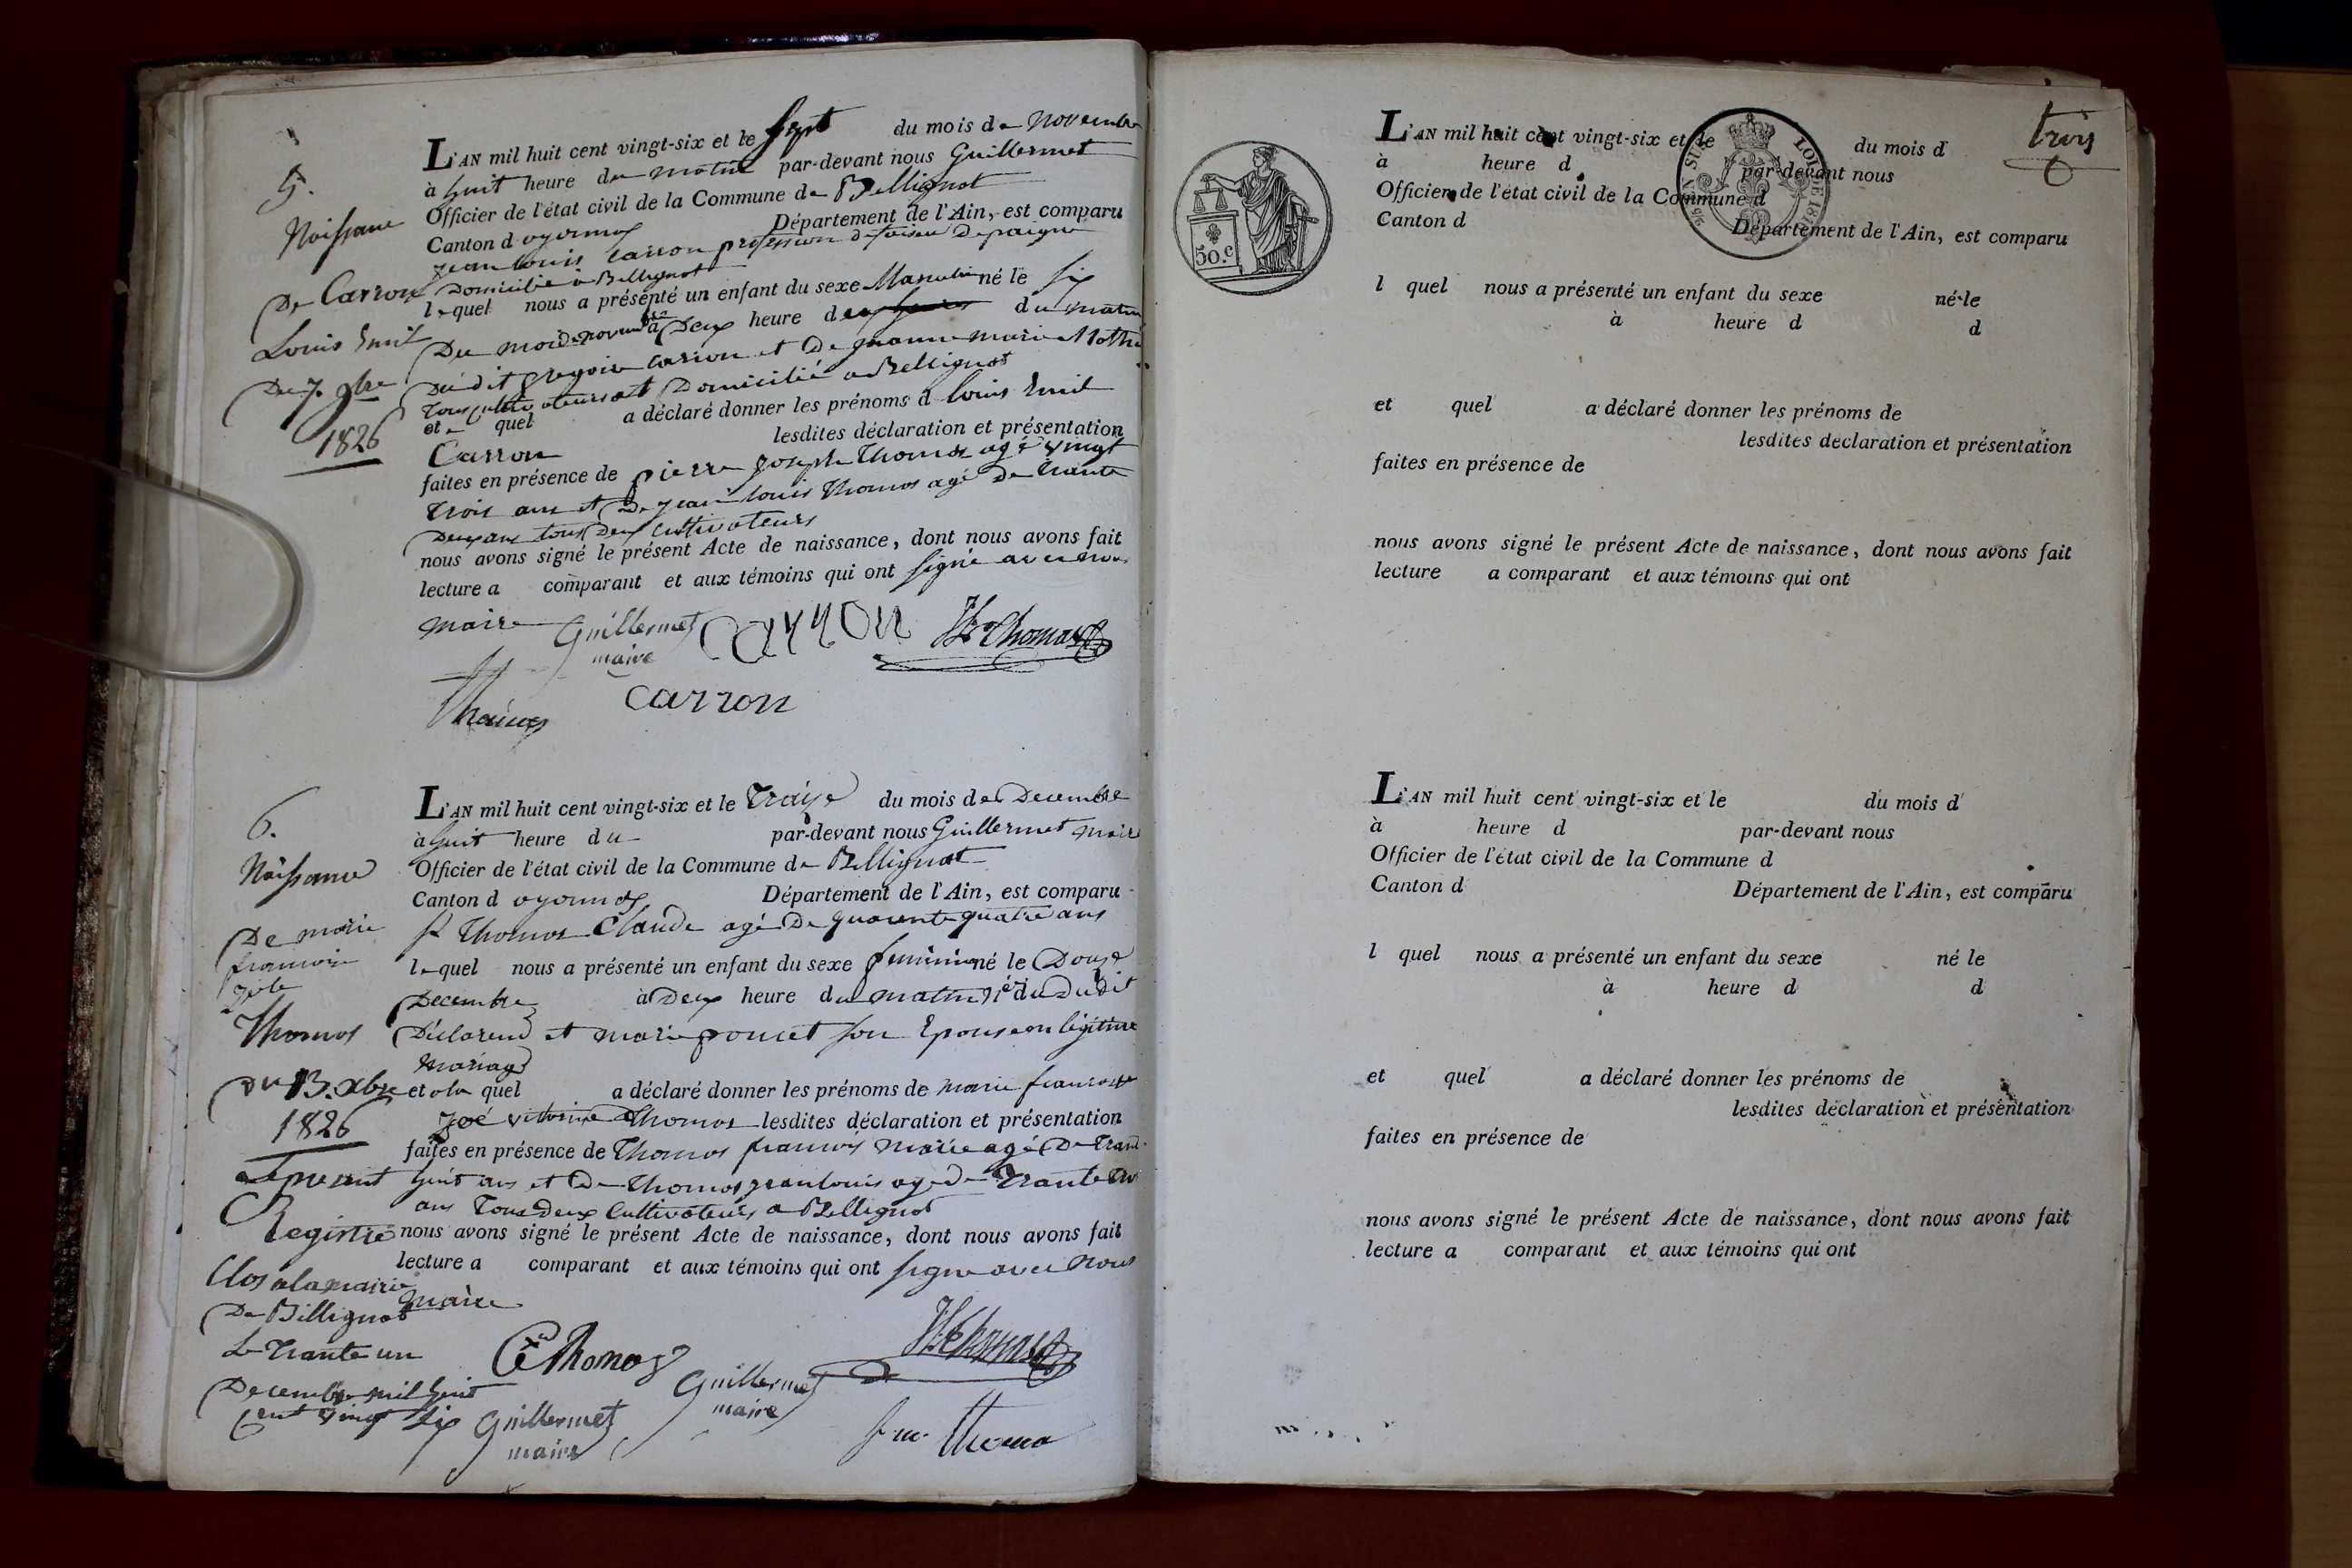 5.
Naissance
De Carron
Louis Emil
Du 7. 9bre
1826
L'AN mil huit cent vingt-six et le sept du mois de novembre
à huit heure du matin par-devant nous Guillermet
Officier de l'état civil de la Commune de Bellignat
Canton d oyonnax Département de l'Ain, est comparu
jean louis Carron profession defaiseu depaigne
Domicilié a Bellignat
lequel nous a présenté un enfant du sexe Masculin né le six
Du mois de novembre à Deux heure du matin
Du dit gregoire Carron et De jeanne marie
Tous cultivateurs et Domicilié a Bellignat
et le quel a déclaré donner les prénoms d louis Emil
Carron lesdites déclaration et présentation
faites en présence de pierre joseph Thomas agé vingt
Trois ans et De jean louis Thomas agé De Trante
Deux ans tous Deux Cultivateurs
nous avons signé le présent Acte de naissance, dont nous avons fait
lecture a comparant et aux témoins qui ont signé avec nous
maire Guillermet maire Carron Thomas
Carron
6.
Naissance
De marie
francoise
Zoé
Thomas
Du 13. Xbre
1826
L'AN mil huit cent vingt-six et le Traize du mois de Decembre
à huit heure du par-devant nous Guillermet maire
Officier de l'état civil de la Commune de Bellignat
Canton d oyonnax Département de l'Ain, est comparu
Sr Thomas Claude agé De quarente quatre ans
lequel nous a présenté un enfant du sexe feminin né le Douze
Decembre à Deux heure du matin né du Dudit
Déclarend et marie poncet son Epouse en légitime
mariage
et le quel a déclaré donner les prénoms de marie francoise
Zoé victorine Thomas lesdites déclaration et présentation
faites en présence de Thomas francois marie agé De Trante
huit ans et De Thomas jean louis agé De Trante
ans Tous deux Cultivateurs a Bellignat
nous avons signé le présent Acte de naissance, dont nous avons fait
lecture a comparant et aux témoins qui ont signe avec nous
maire
Le present
Registre
Clos a la mairie
De Bellignat
Le Trante un
Decembre mil huit
cent vingt six
Cde Thomas
Guillermet
maire
Guillermet
maire
f. m. Thoma
trois
50.c
LOI DE 1816
L'AN mil huit cent vingt-six et le du mois d
à heure d par-devant nous
Officier de l'état civil de la Commune d
Canton d Département de l'Ain, est comparu
l quel nous a présenté un enfant du sexe né le
à heure d d
et quel a déclaré donner les prénoms de
lesdites déclaration et présentation
faites en présence de
nous avons signé le présent Acte de naissance, dont nous avons fait
lecture a comparant et aux témoins qui ont
L'AN mil huit cent vingt-six et le du mois d
à heure d par-devant nous
Officier de l'état civil de la Commune d
Canton d Département de l'Ain, est comparu
l quel nous a présenté un enfant du sexe né le
à heure d d
et quel a déclaré donner les prénoms de
lesdites déclaration et présentation
faites en présence de
nous avons signé le présent Acte de naissance, dont nous avons fait
lecture a comparant et aux témoins qui ont